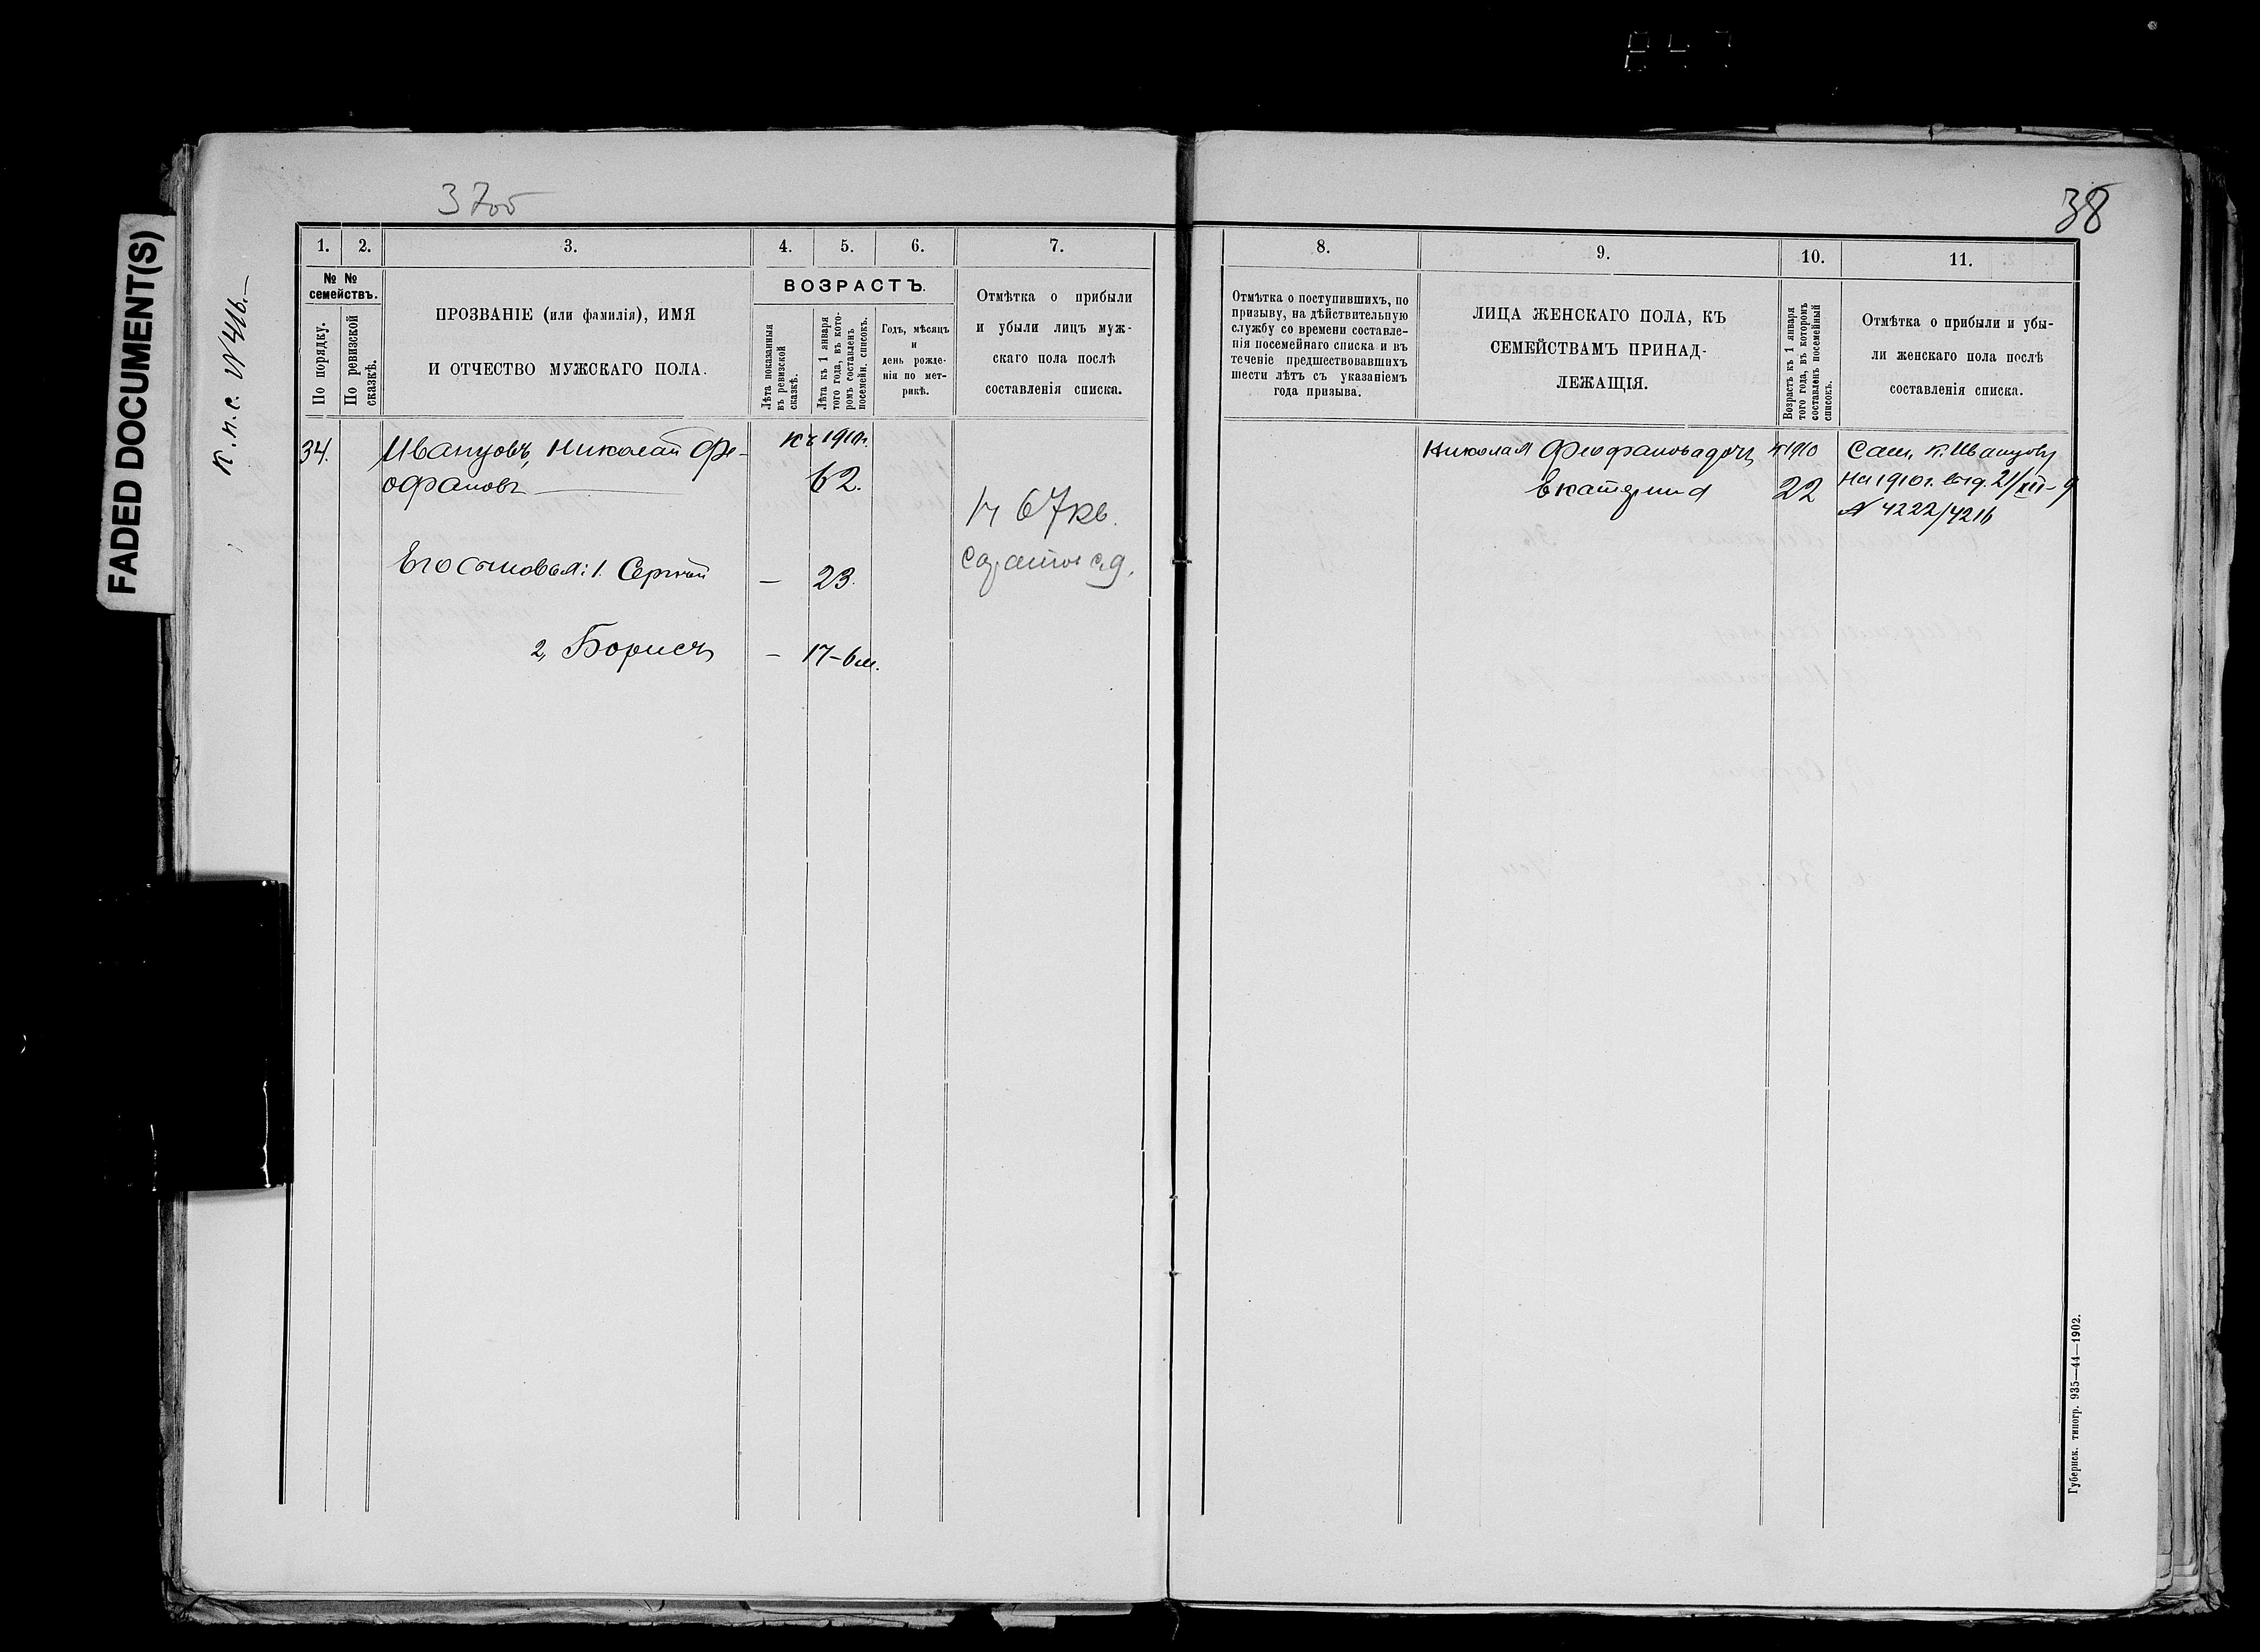 FADED DOCUMENT(S)
37об
38
К. п. с. № 416.—
1. 2. 3. 4. 5. 6. 7.
№ № семействъ.
По порядку.
По ревизской сказкѣ.
ПРОЗВАНІЕ (или фамилія), ИМЯ
И ОТЧЕСТВО МУЖСКАГО ПОЛА.
ВОЗРАСТЪ.
Лѣта показанныя
въ ревизской
сказкѣ.
Лѣта къ 1 января
того года, въ кото-
ромъ составленъ
посемейн. списокъ.
Годъ, мѣсяцъ
и
день рожде-
нія по мет-
рикѣ.
Отмѣтка о прибыли
и убыли лицъ муж-
скаго пола послѣ
составленія списка.
34.
Ивануовъ, Николай Фе-
офановъ
къ 1910г.
62.
Его сыновья: 1. Сергѣй — 23.
2, Борисъ — 17-6м.
67кв.
8. 9. 10. 11.
Отмѣтка о поступившихъ, по
призыву, на дѣйствительную
службу со времени составле-
нія посемейнаго списка и въ
теченіе предшествовавшихъ
шести лѣтъ съ указаніемъ
года призыва.
ЛИЦА ЖЕНСКАГО ПОЛА, КЪ
СЕМЕЙСТВАМЪ ПРИНАД-
ЛЕЖАЩІЯ.
Возрастъ къ 1 января
того года, въ которомъ
составленъ посемейный
списокъ.
Отмѣтка о прибыли и убы-
ли женскаго пола послѣ
составленія списка.
Николая Феофанова дочь
Екатерина
к 1910
22
На 1910г. выд. 21/XII-9
№ 4222/4216
Губернск. типогр. 935—44—1902.